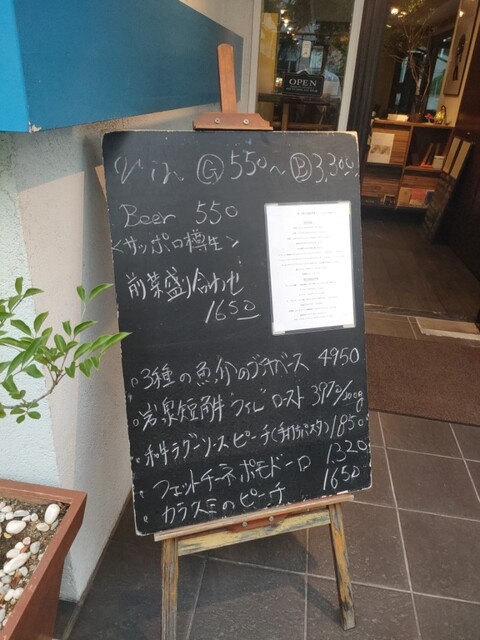 OPEN
Vin Ⓖ550〜Ⓑ3,300
Beer 550
<サッポロ樽生>
前菜盛り合わせ
1650
3種の魚介のブイヤベース 4950
岩泉短角牛フィレロースト 3970/100g
和牛ラグーソースピーチ(手打ちパスタ)1850
フェットチーネポモドーロ 1320
カラスミのピーチ 1650